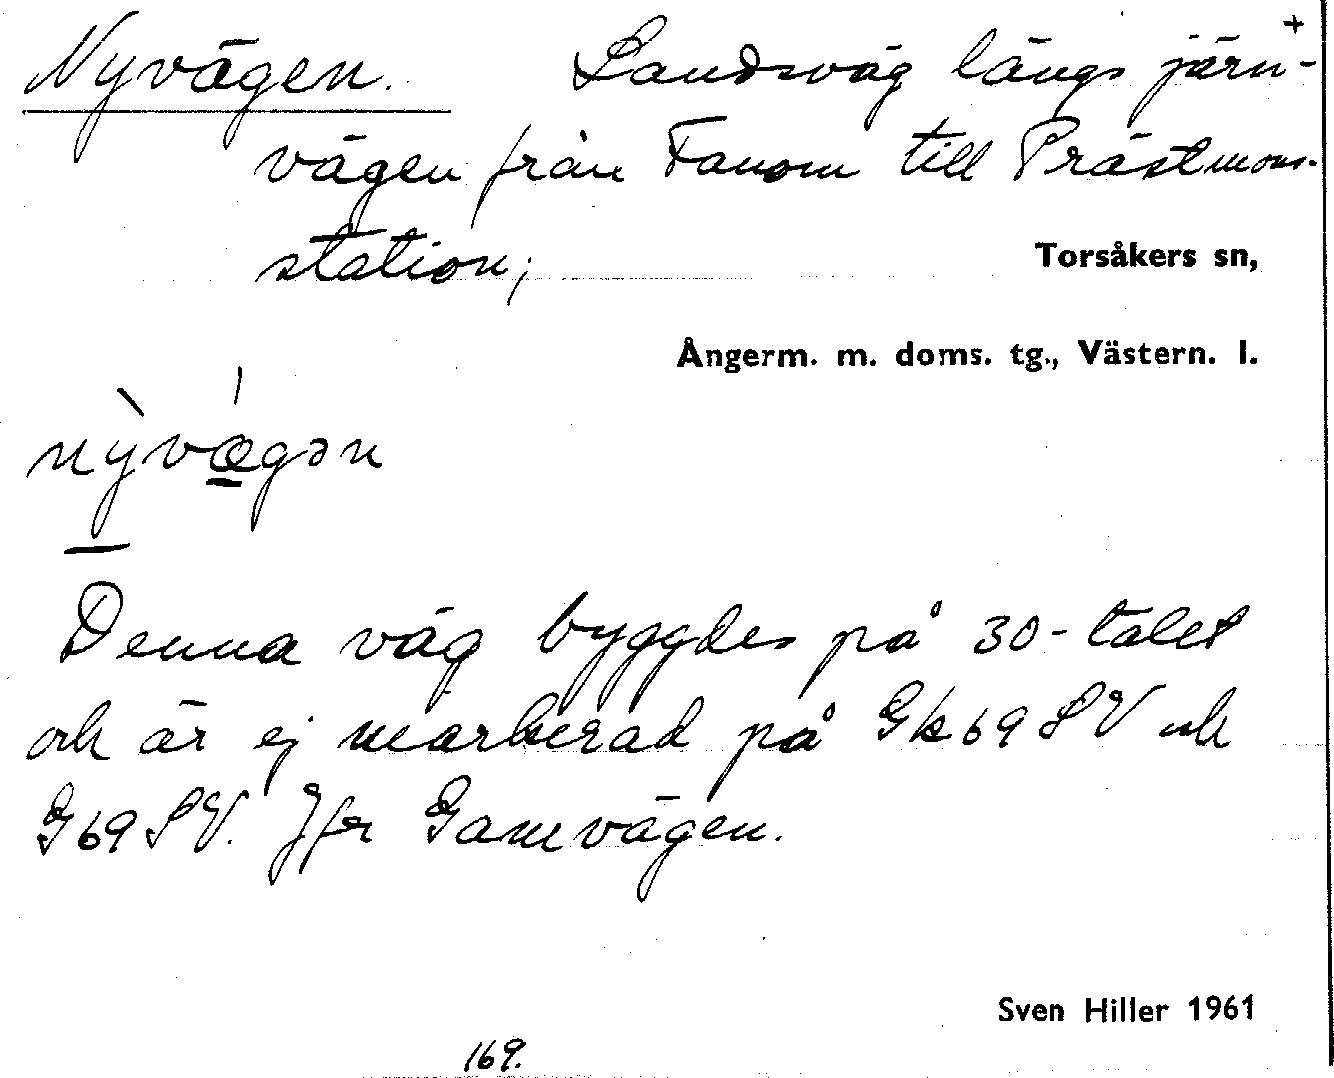 +
Nyvägen. Landsväg längs järn-
vägen från Fanom till Prästmons-
station;
Torsåkers sn,
Ångerm. m. doms. tg., Västern. l.
nỳvǽgən
Denna väg byggdes på 30-talet
och är ej markerad på Gk69SV och
G69SV. Jfr Gamvägen.
Sven Hiller 1961
169.